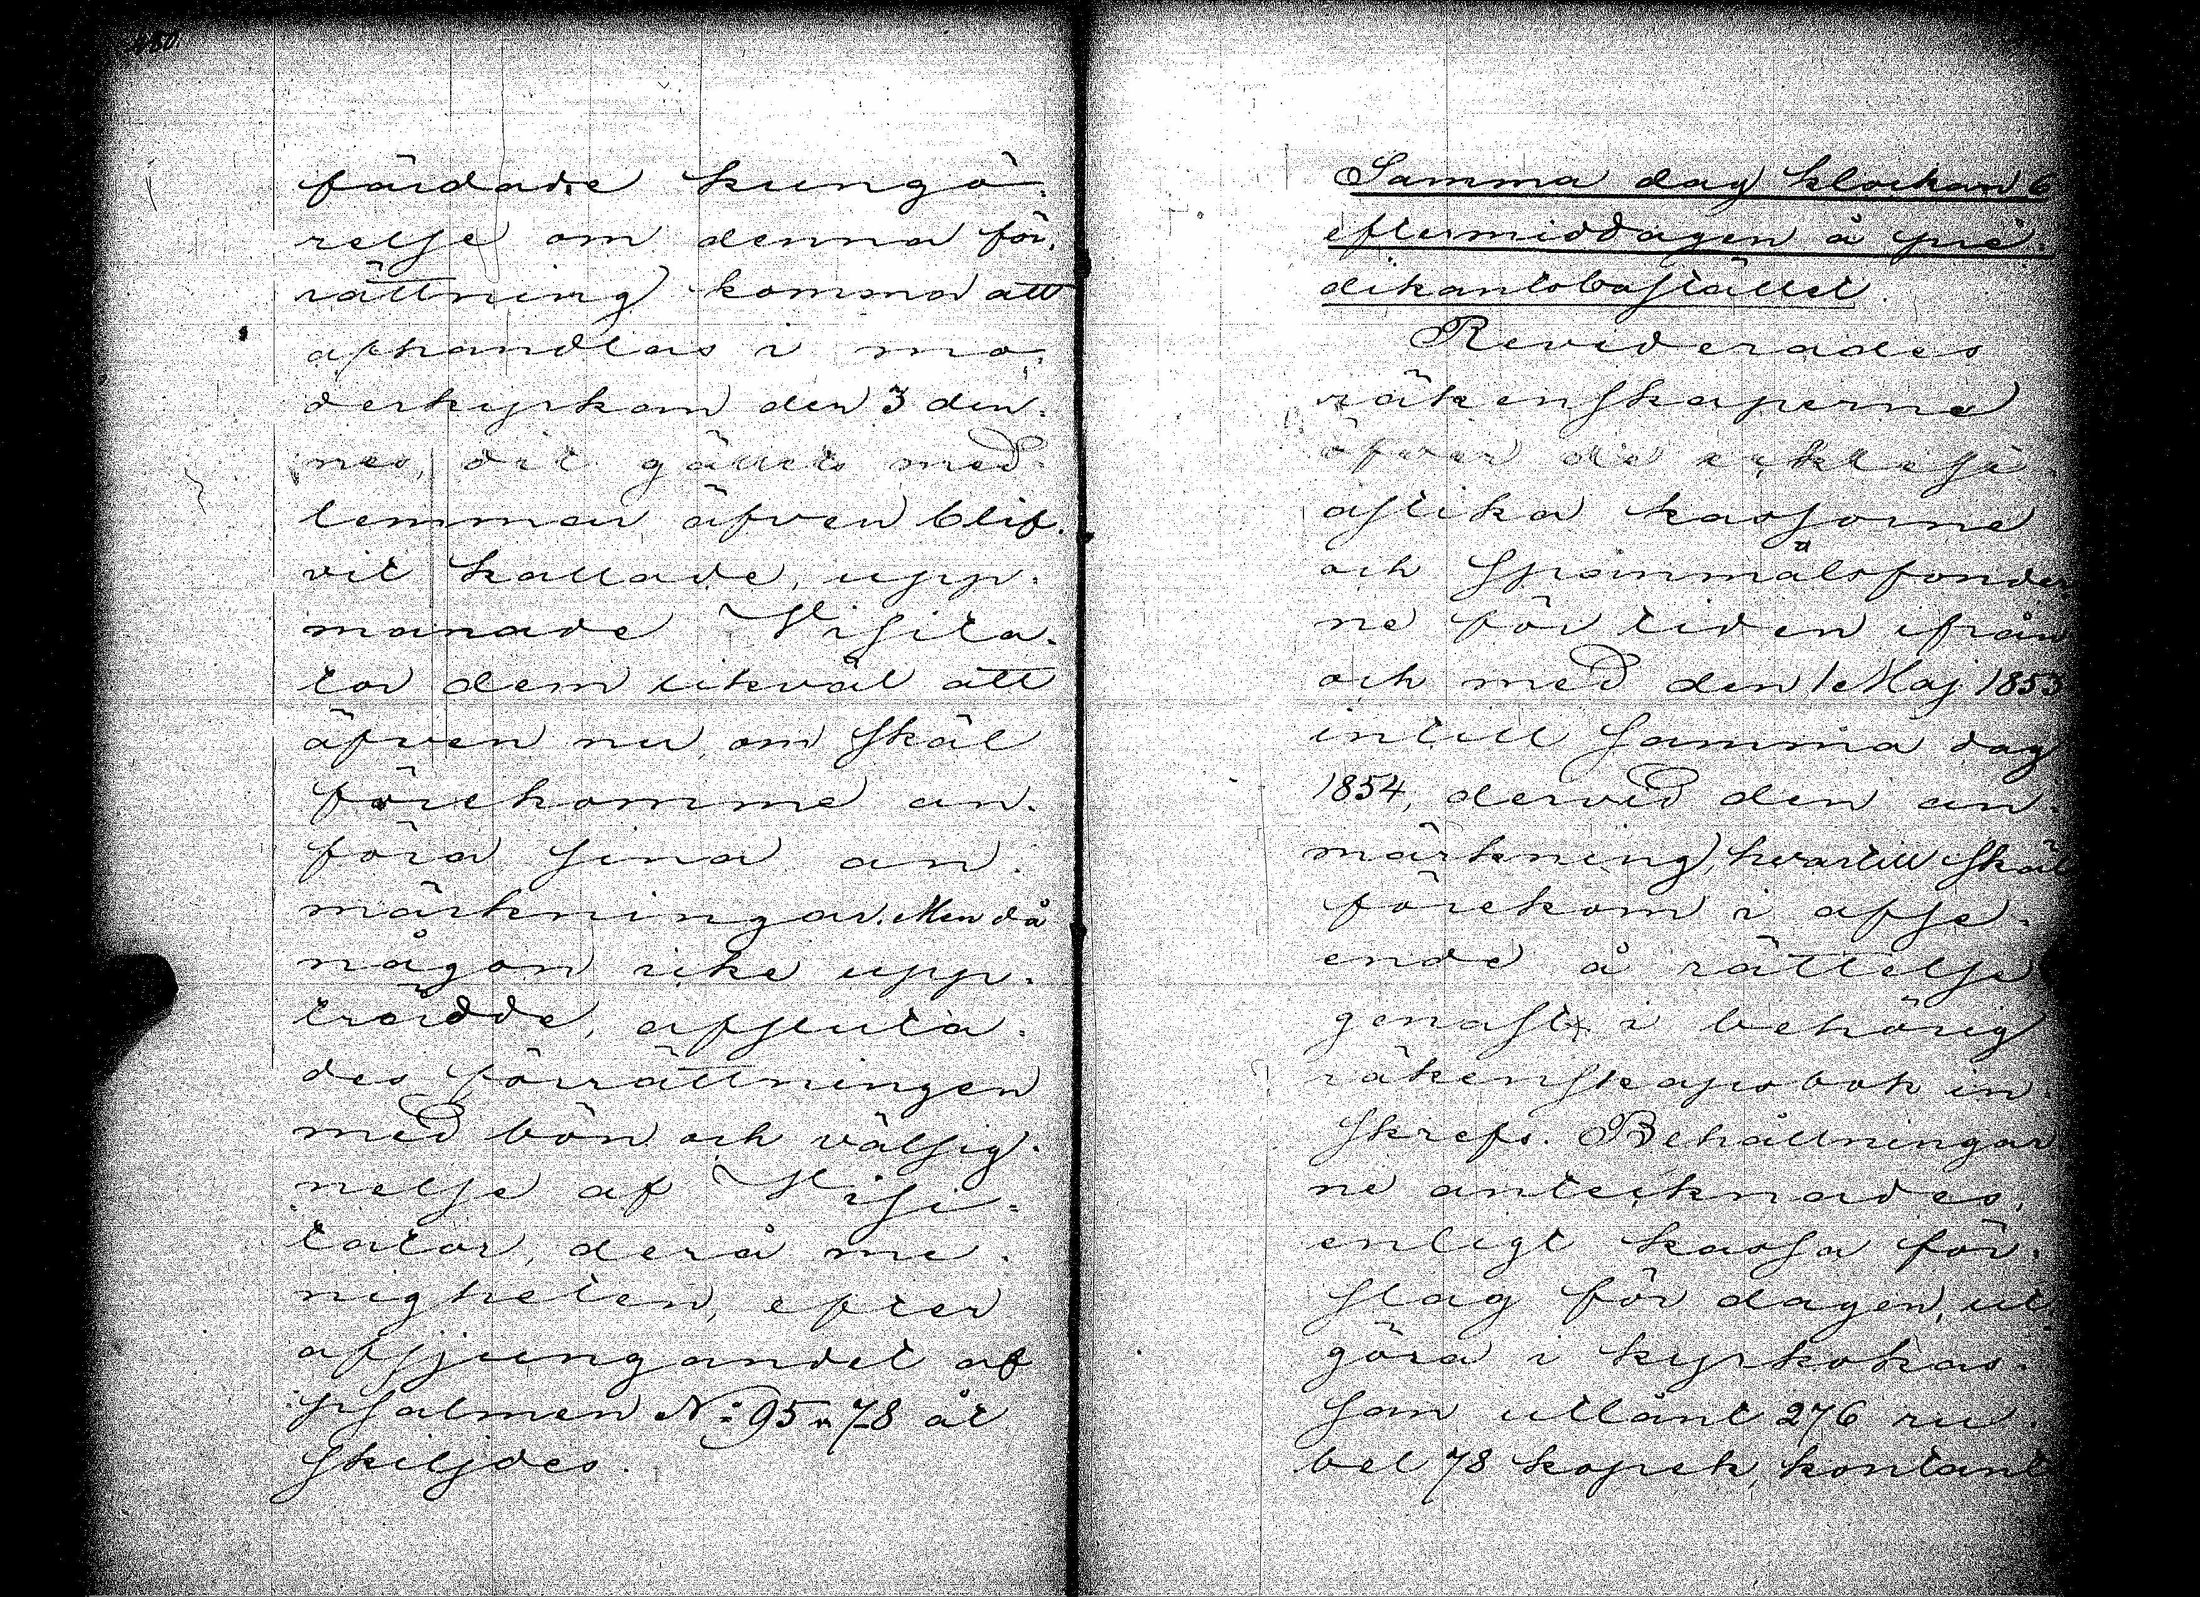 färdade kungö-
relse om denna för-
rättning komma att
afhandlas i mo-
derkyrkan den 3 den-
nes, dit gällets med-
lemmar äfven blif-
vit kallade, upp-
manade Visita-
tor dem likväl att
äfven nu, om skäl
förekomme an-
föra sina an-
märkningar. Men då
någon icke upp-
trädde, afsluta-
des förrättningen
med bön och välsig-
nelse af Visi-
tator, derå me-
nigheten, efter
afsjungandet af
psalmen N:o 95 v. 7-8 åt
skiljdes.
Samma dag klockan 6
eftermiddagen å pre-
dikantsbostället.
Reviderades
räkenskaperne
öfver de ecklesi-
astika kassorne
och spanmålsfonder
ne för tiden ifrån
och med den 1 Maj 1853
intill samma dag
1854, dervid den an-
märkning, hvartill skäl
förekom i afse-
ende å rättelse
genast i behörig
räkenskapsbok in-
skrefs. Behållningar
ne antecknades,
enligt kassa för-
slag för dagen, ut
göra i kyrkokas-
san utlånt 276 ru-
bel 78 kopek, kontant